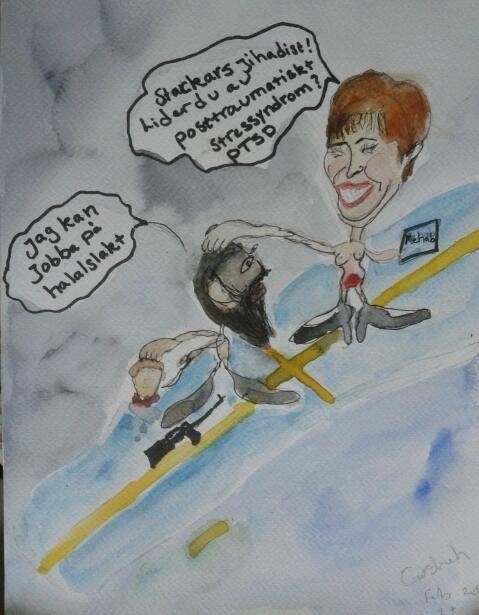 Stackars Jihadist!
Lider du av
posttraumatiskt
stressyndrom?
PTSD
Jag kan
Jobba på
halalslakt
Rehab